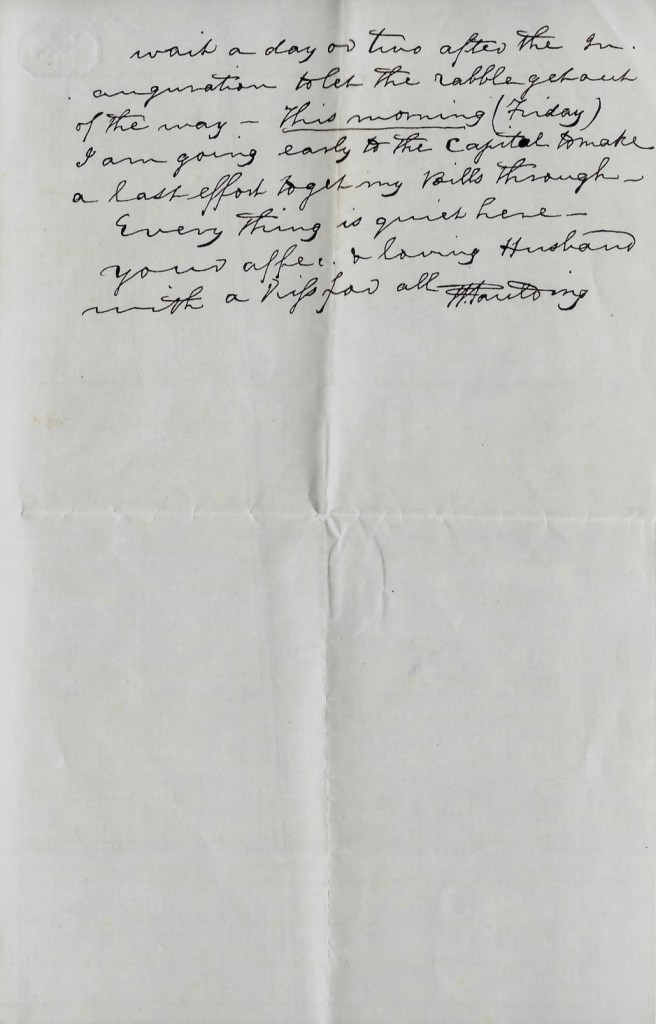 wait a day or two after the In.
auguration to let the rabble get out
of the way – This morning (Friday)
I am going early to the Capitol to make
a last effort to get my Bills through –
Every thing is quiet here –
your affec. & loving Husband
with a kiss for all H Paulding